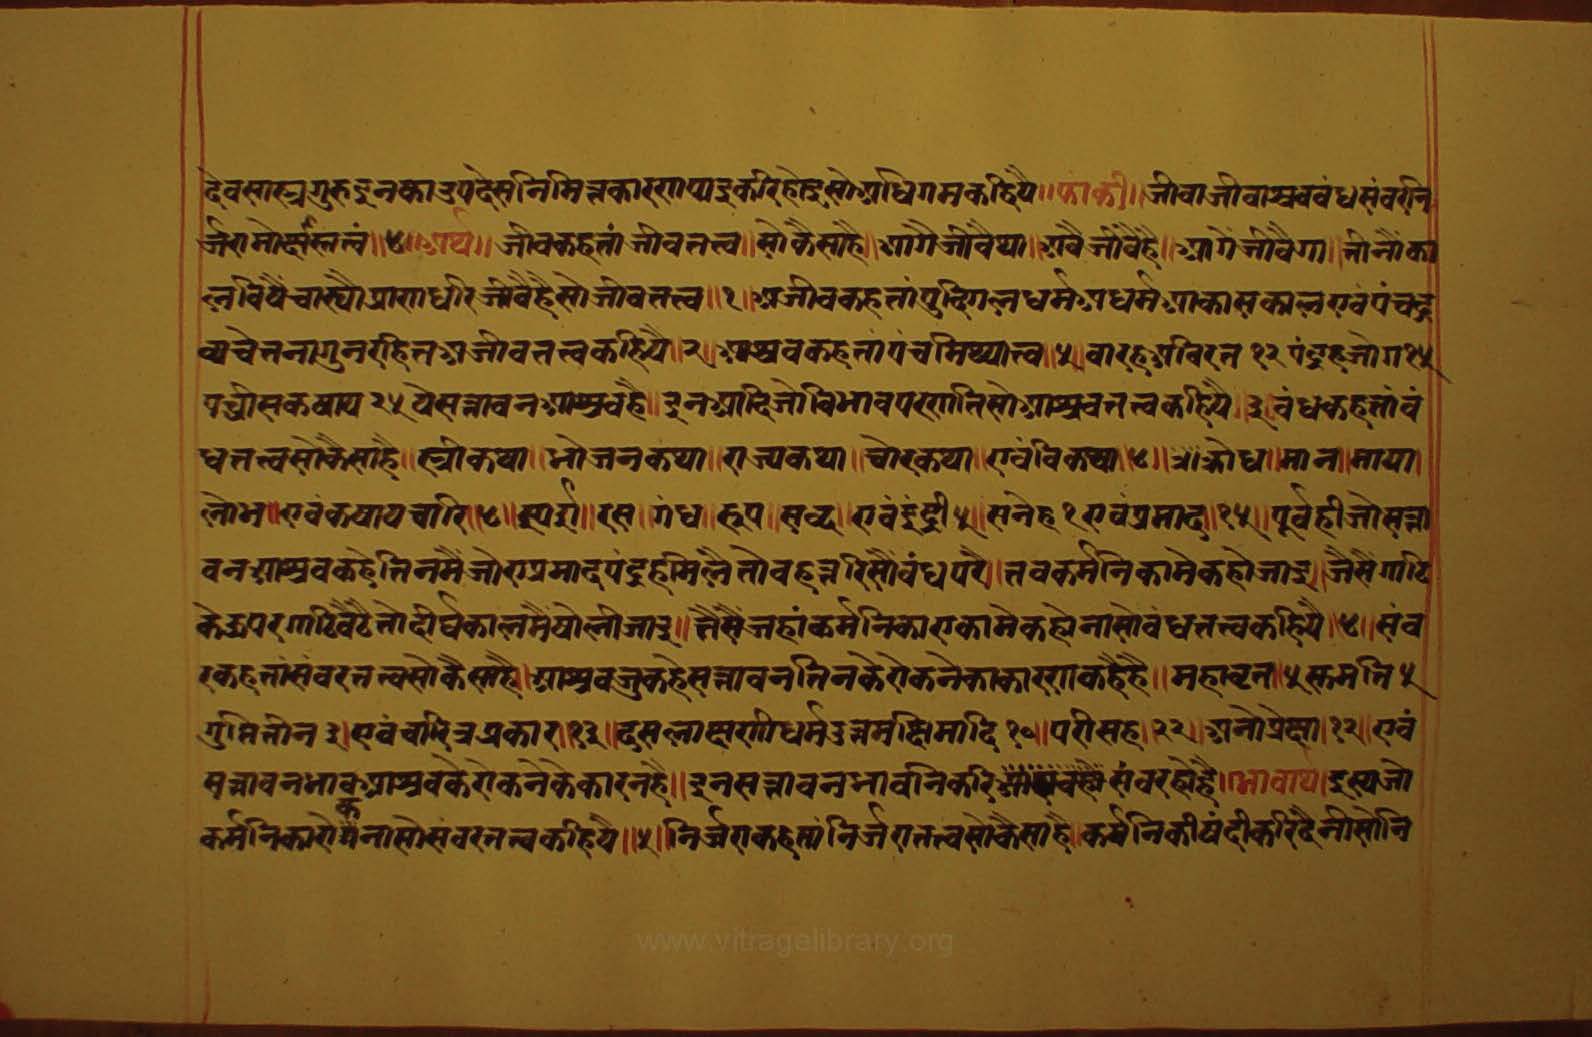 देवसास्त्रगुरुइनकाउपदेसनिमित्तकारणपाइकरिहोइसोअधिगमकहियै॥फांकी॥जीवाजीवाश्रवबंधसंवरनि
र्जरामोक्षास्तत्वं॥४॥अर्थ॥जीवकहतांजीवतत्त्व॥सोकैसाहै॥आगैजीवैथा॥अबैजीवैहै॥आगेंजीवैगा॥तीनौंका
लविषैंचास्यौप्राणधरिजीवैहैसोजीवतत्त्व॥१॥अजीवकहतांपुदिगलधर्मअधर्मआकासकालएवंपंचद्र
व्यचेतनागुनरहितअजीवतत्त्वकहियै॥२॥आश्रवकहतांपंचमिथ्यात्त्व॥५॥बारहअविरत१२पंद्रहजोग१५
पच्चीसकषाय२५येसत्तावनआश्रवहै॥इनआदिजोविभावपरणतिसोआश्रवतत्त्वकहियै॥३॥बंधकहतांबं
धतत्त्वसोकैसाहै॥स्त्रीकथा॥भोजनकथा॥राज्यकथा॥चोरकथा॥एवंविकथा४॥क्रोध॥मान॥माया॥
लोभ॥एवंकषायचारि॥४॥स्पर्श॥रस॥गंध॥रूप॥सब्द॥एवंइंद्री५॥सनेह१एवंप्रमाद॥१५॥पूर्वहीजोसत्ता
वनआश्रवकहेतिनमैंजोएप्रमादपंद्रहमिलैतोवहत्तरिसौंबंधपरै॥तबकर्मनिकामेकहोजाइ॥जैसैंगांठि
केऊपरगांठिबैठैतोदीर्घकालमैंषोलीजाइ॥तैसैंजहांकर्मनिकाएकामेकहोनासोबंधतत्त्वकहियै॥४॥संव
रकहतांसंवरतत्त्वसोकैसाहै॥आश्रवजुकहेसत्तावनतिनकेरोकनेकाकारणकहैहै॥महाव्रत॥५सुमति५
गुप्तितीन३॥एवंचारित्रप्रकार॥१३॥दसलाक्षणीधर्मउत्तमक्षिमादि१०॥परीसह॥२२॥अनोप्रेक्षा॥१२॥एवं
सत्तावनभावआश्रवकेरोकनेकेकारनहै॥इनसत्तावनभावनिकरिसंवरहोहै॥भावार्थ॥इस्यजो
कर्मनिकारोकनासोसंवरतत्त्वकहियै॥५॥निर्जराकहतांनिर्जरातत्त्वसोकैसाहै॥कर्मनिकीषंदीकरिदैनीसोनि
www.vitragelibrary.org